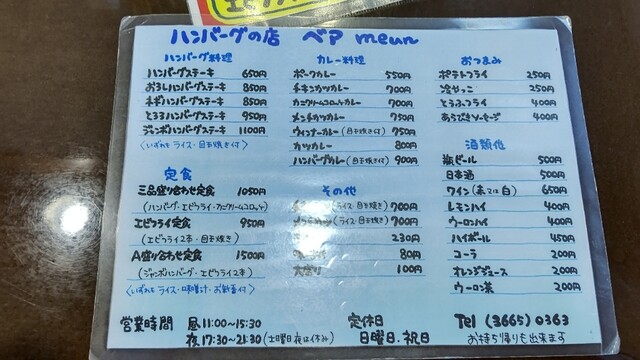 ハンバーグの店 ベア meun
ハンバーグ料理
ハンバーグステーキ 650円
おろしハンバーグステーキ 850円
ネギハンバーグステーキ 850円
とろろハンバーグステーキ 950円
ジャンボハンバーグステーキ 1100円
(いずれも ライス・目玉焼き付)
定食
三品盛り合わせ定食 1050円
(ハンバーグ・エビフライ・カニクリームコロッケ)
エビフライ定食 950円
(エビフライ3本・目玉焼き)
A盛り合わせ定食 1500円
(ジャンボハンバーグ・エビフライ2本)
(いずれも ライス・味噌汁・お新香付)
カレー料理
ポークカレー 550円
チキンカツカレー 700円
カニクリームコロッケカレー 700円
メンチカツカレー 750円
ウィンナーカレー (目玉焼き付) 750円
カツカレー 800円
ハンバーグカレー (目玉焼き付) 900円
その他
(ライス・目玉焼き) 700円
(ライス・目玉焼き) 700円
230円
80円
大盛り 100円
おつまみ
ポテトフライ 250円
冷やっこ 250円
とうふフライ 400円
あらびきソーセージ 400円
酒類他
瓶ビール 500円
日本酒 500円
ワイン (赤又は白) 650円
レモンハイ 400円
ウーロンハイ 400円
ハイボール 450円
コーラ 200円
オレンジジュース 200円
ウーロン茶 200円
営業時間 昼 11:00〜15:30
夜 17:30〜21:30 (土曜日夜は休み)
定休日
日曜日.祝日
Tel (3665) 0363
お持ち帰りも出来ます